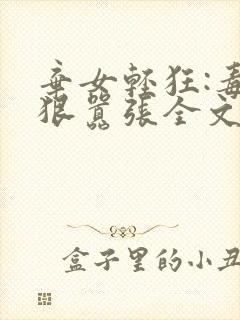 棄女輕狂:毒
狠囂張全文
盒子里的小丑